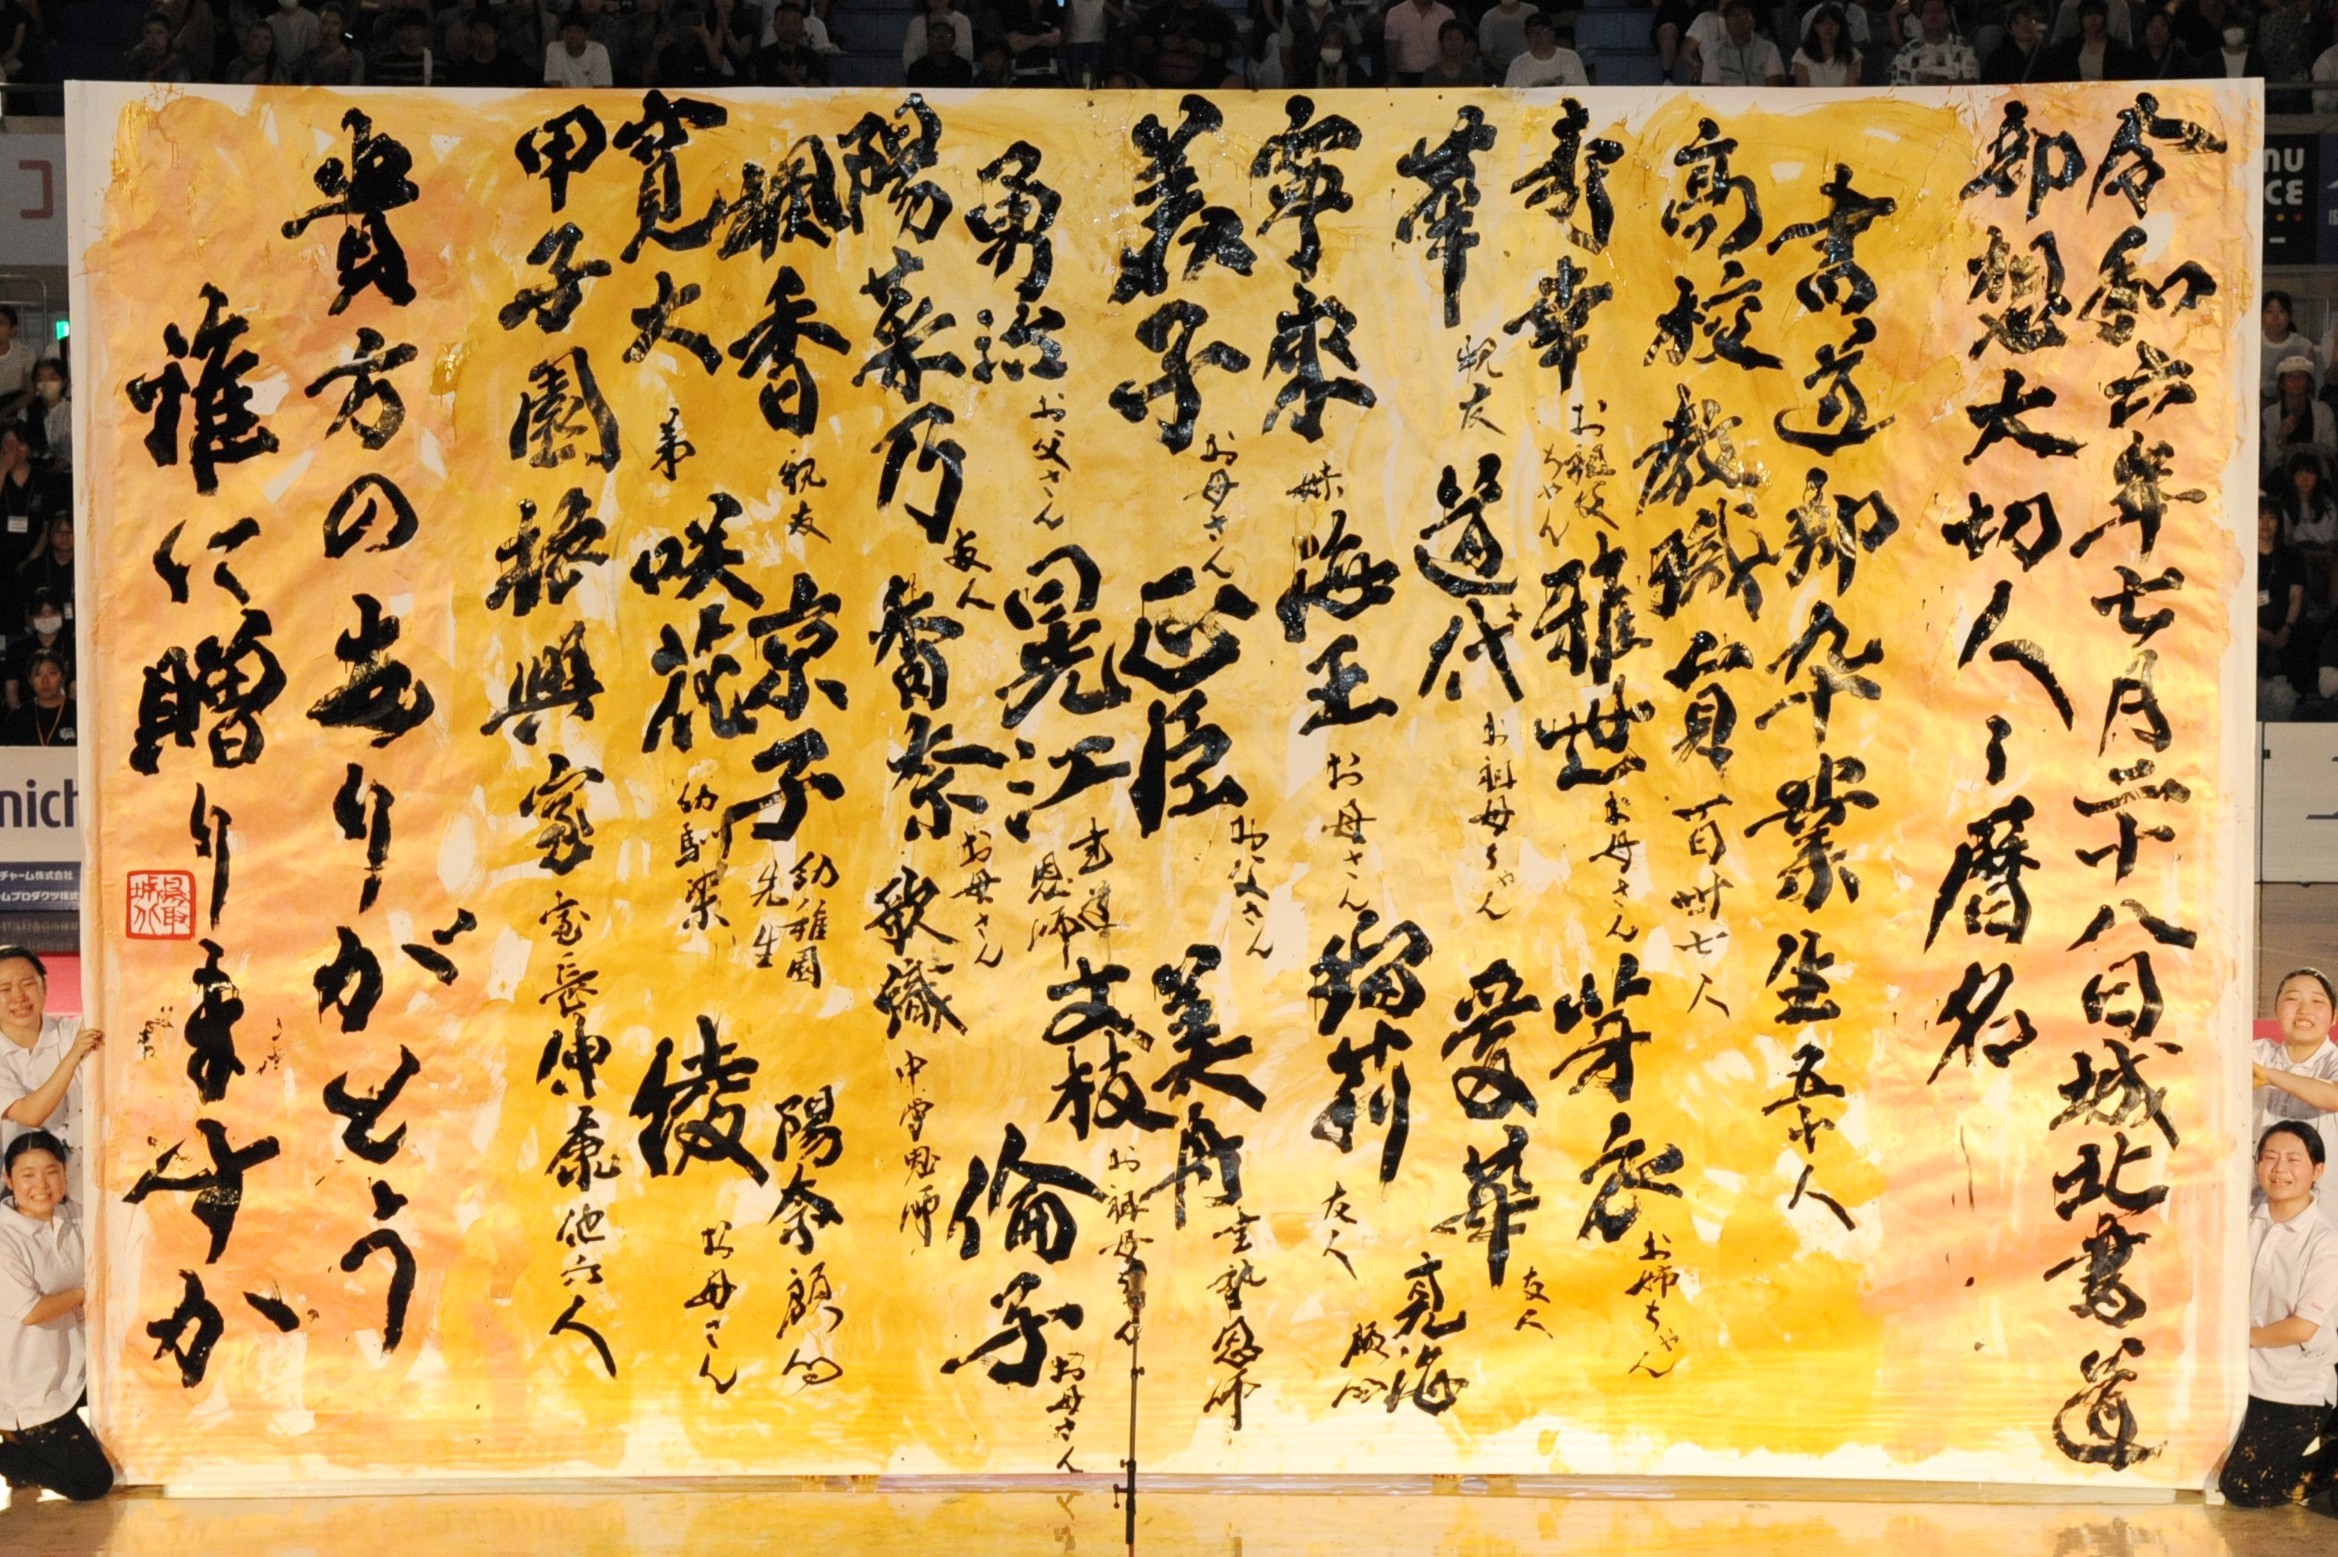 令和六年七月二十八日城北書道
部想大切人々暦名
書道部卒業生五十人
高校教職員百卌七人
寿幸 お祖父ちゃん 雅世 お母さん 芽衣 お姉ちゃん
華 親友 道代 お祖母ちゃん 愛華 友人
寧来 妹 海王 お母さん 瑠莉 友人 亮海 顧問
義子 お母さん 正臣 お父さん 美舟 書塾恩師
勇治 お父さん 晃江 書道恩師 文枝 お祖母さん
陽菜乃 友人 香奈 お母さん 歌織 中学恩師 倫子 お母さん
颯香 親友 京子 幼稚園先生 陽奈 顧問
寛大 弟 咲花 幼馴染 綾 お母さん
甲子園振興室 室長 伸康 他六人
貴方の出りがとう
誰に贈りますか
鳥取城北